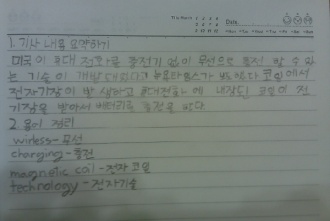 Date.
1. 기사 내용 요약하기
미국이 휴대 전화를 충전기 없이 무선으로 충전 할 수 있
는 기술이 개발 되었다고 뉴욕타임스가 코일에서
전자기장이 발생하고 휴대전화에 내장된 코일이 전
기장을 받아서 배터리로 충전을 한다.
2. 용어 정리
wirless-무선
charging-충전
magnetic coil-전자 코일
technology-전자기술